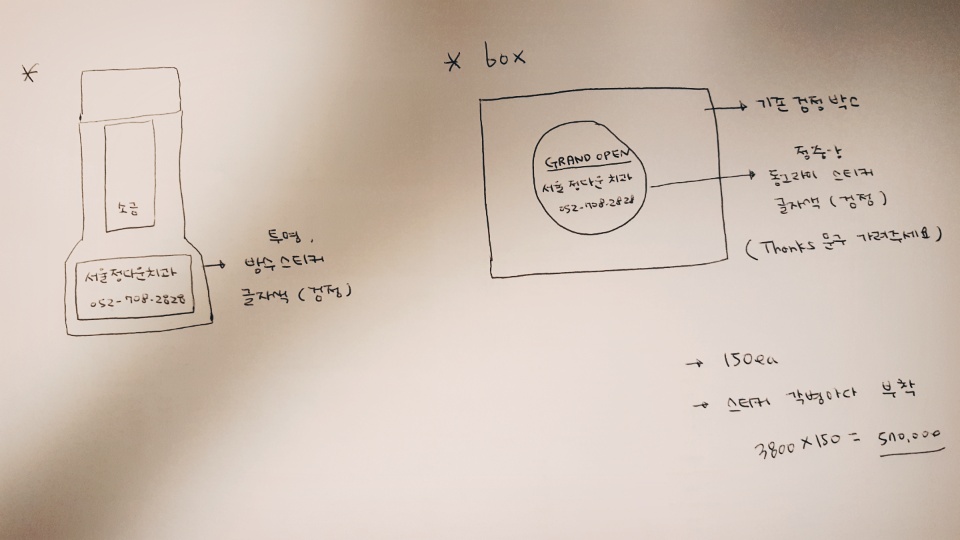 *
소금
서울정다운치과
052-708-2828
투명,
방수스티커
글자색 (검정)
* box
GRAND OPEN
서울 정다운 치과
052-708-2828
기존 검정 박스
정중앙
동그라미 스티커
글자색 (검정)
(Thanks 문구 가려주세요)
→ 150ea
→ 스티커 각병마다 부착
3800×150 = 570,000